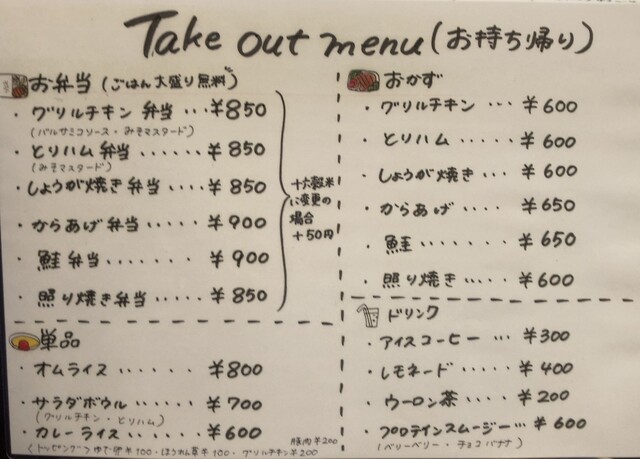 Take out menu (お持ち帰り)
お弁当 (ごはん大盛り無料)
・グリルチキン弁当...¥850
(バルサミコソース・みそマスタード)
・とりハム弁当......¥850
(みそマスタード)
・しょうが焼き弁当....¥850
・からあげ弁当.....¥900
・鮭弁当.......¥900
・照り焼き弁当.....¥850
十六穀米
に変更の
場合
+50円
単品
・オムライス......¥800
・サラダボウル......¥700
(グリルチキン・とりハム)
・カレーライス......¥600
(トッピング→ゆで卵¥100・ほうれん草¥100・グリルチキン¥200
豚肉¥200
おかず
・グリルチキン...¥600
・とりハム.....¥600
・しょうが焼き...¥600
・からあげ.....¥650
・鮭.......¥650
・照り焼き.....¥600
ドリンク
・アイスコーヒー...¥300
・レモネード.....¥400
・ウーロン茶.....¥200
・プロテインスムージー...¥600
(ベリーベリー・チョコバナナ)